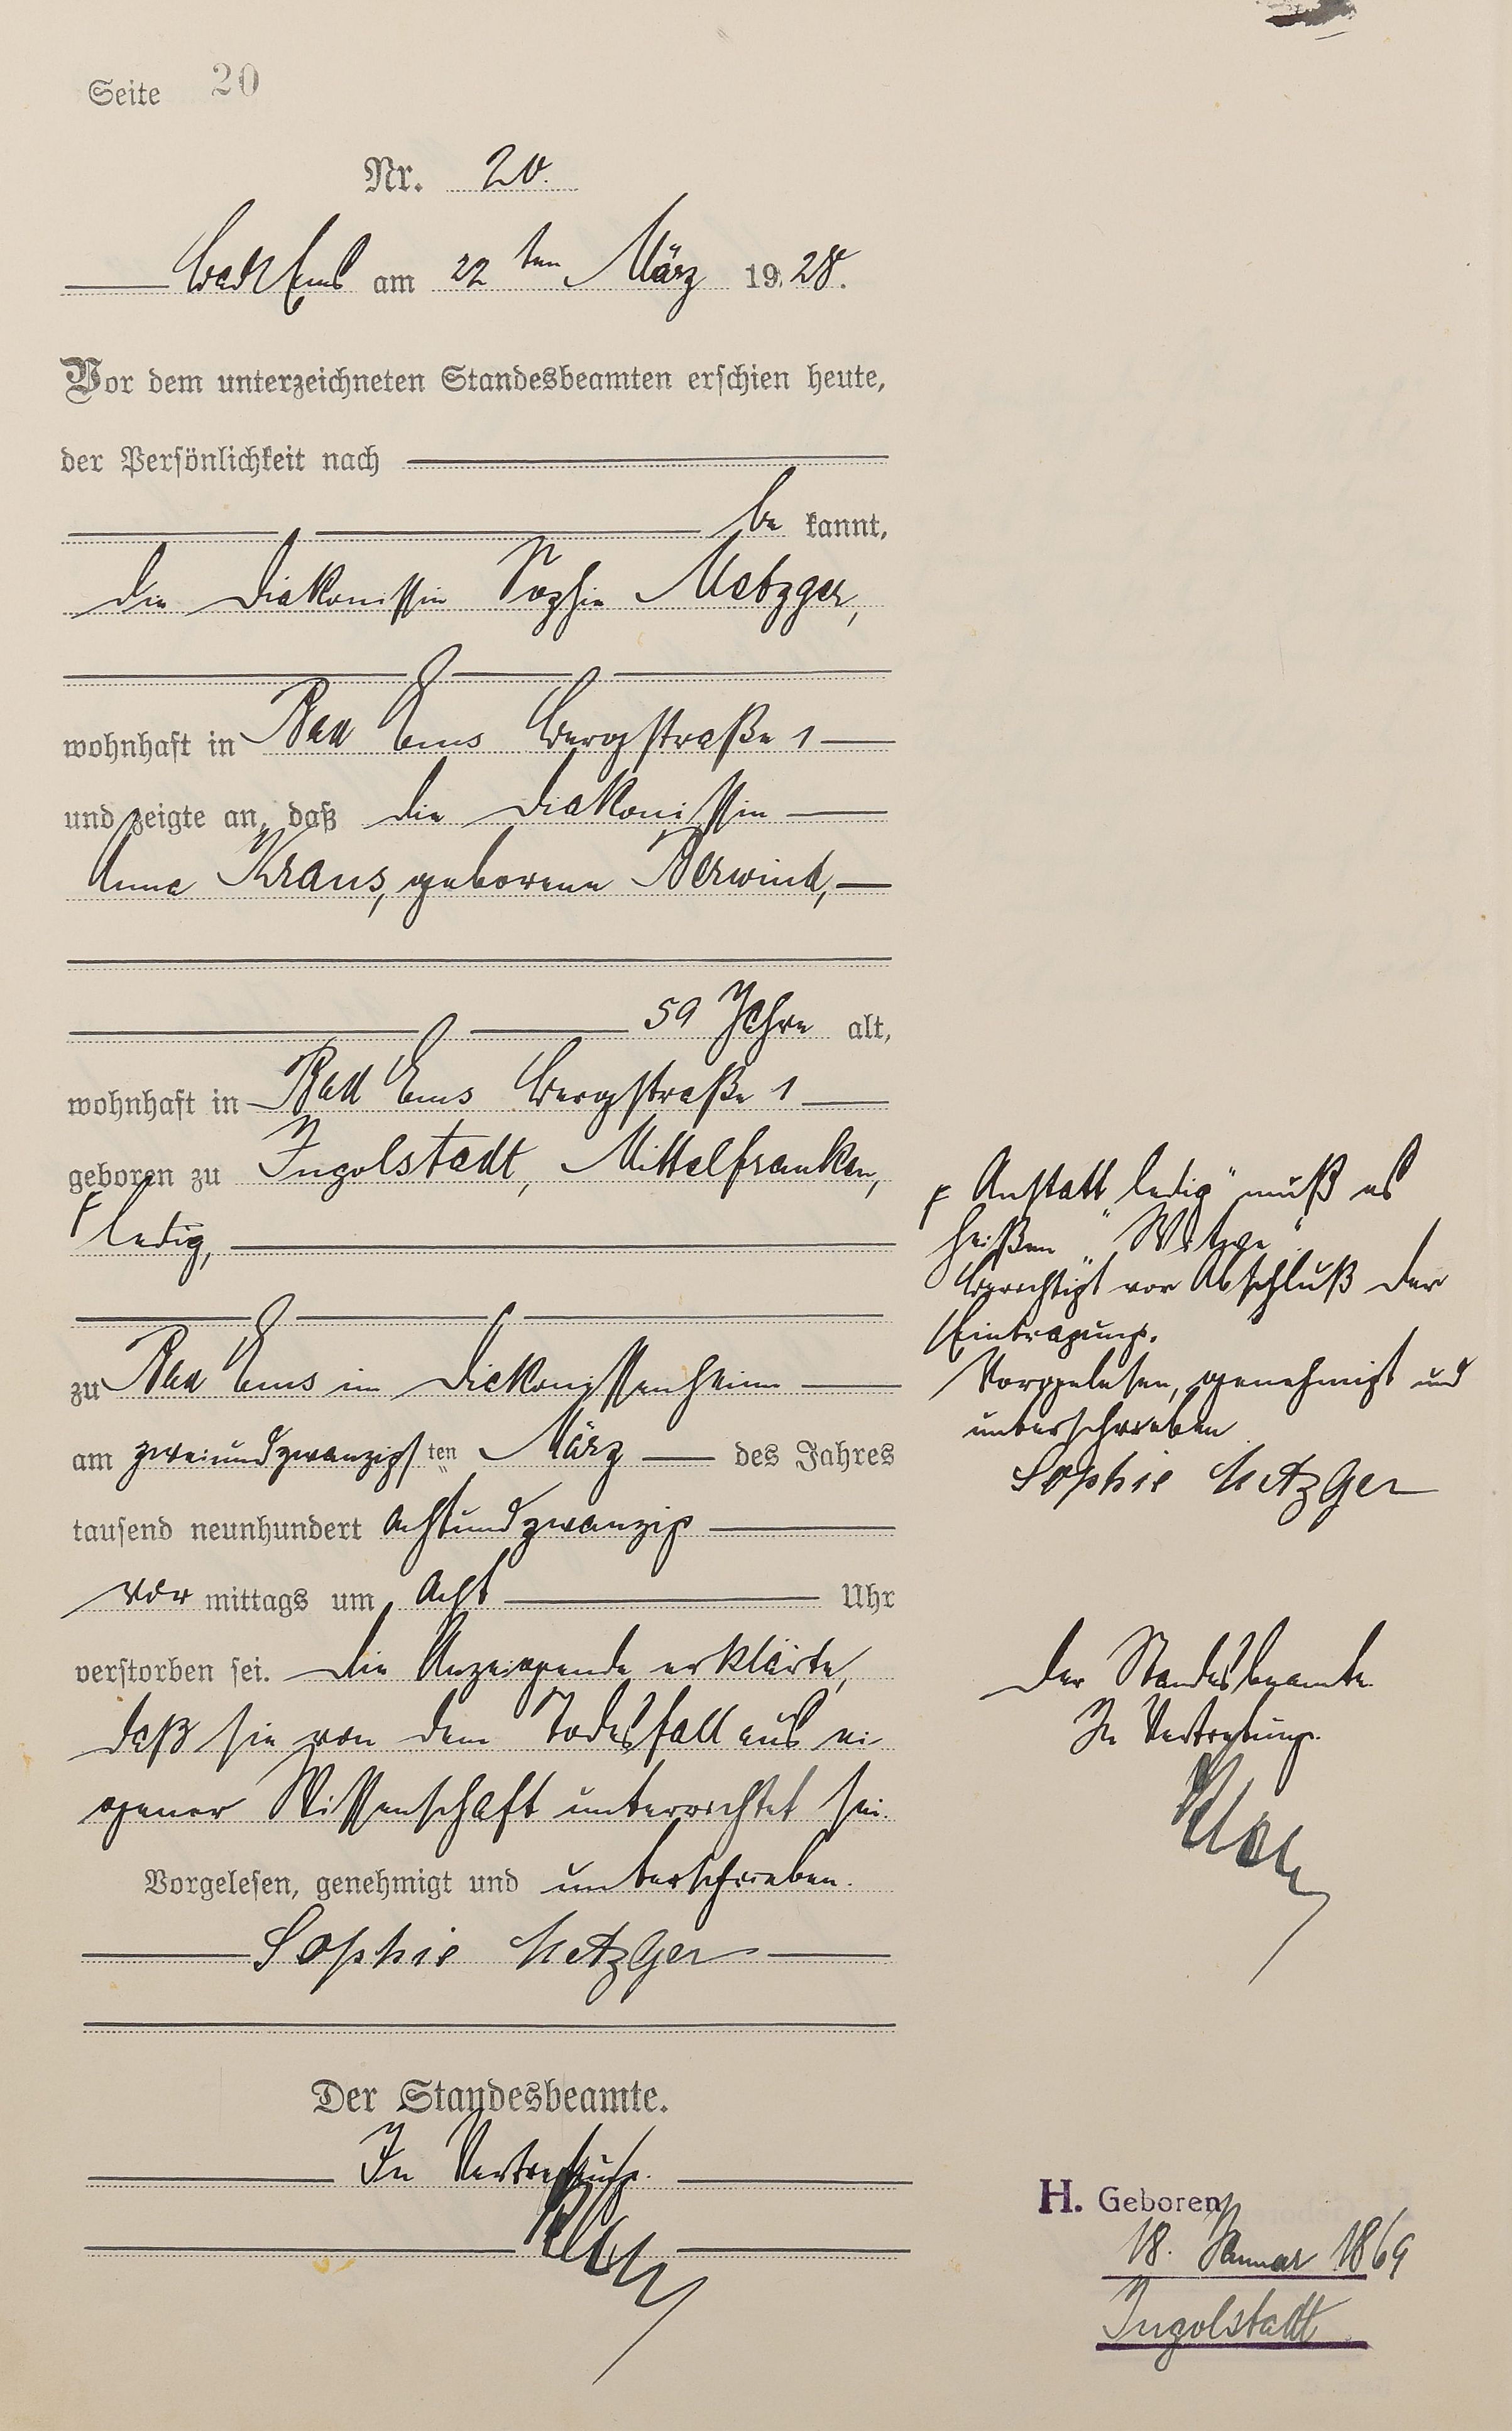 Seite 20
Nr. 20.
Bad Ems am 22 ten März 1928.
Vor dem unterzeichneten Standesbeamten erschien heute,
der Persönlichkeit nach
be kannt,
die Diakonissin Sophie Metzger,
wohnhaft in Bad Ems Bergstraße 1
und zeigte an, daß die Diakonissin
Anna Kraus, geborene Berwind,
59 Jahre alt,
wohnhaft in Bad Ems Bergstraße 1
geboren zu Ingolstadt, Mittelfranken,
ledig,
zu Bad Ems im Diakonissenheim
am zweiundzwanzigs ten März des Jahres
tausend neunhundert achtundzwanzig
vor mittags um acht Uhr
verstorben sei. Die Anzeigende erklärte,
daß sie von dem Todesfall aus ei
gener Wissenschaft unterrichtet sei.
Vorgelesen, genehmigt und unterschrieben.
Sophie Metzger
Der Standesbeamte.
In Vertretung.
Anstatt "ledig" muß es
heißen "Witwe".
Berichtigt vor Abschluß der
Eintragung.
Vorgelesen, genehmigt und
unterschrieben
Sophie Metzger
Der Standesbeamte.
In Vertretung.
H. Geboren
18. Januar 1869
Ingolstadt